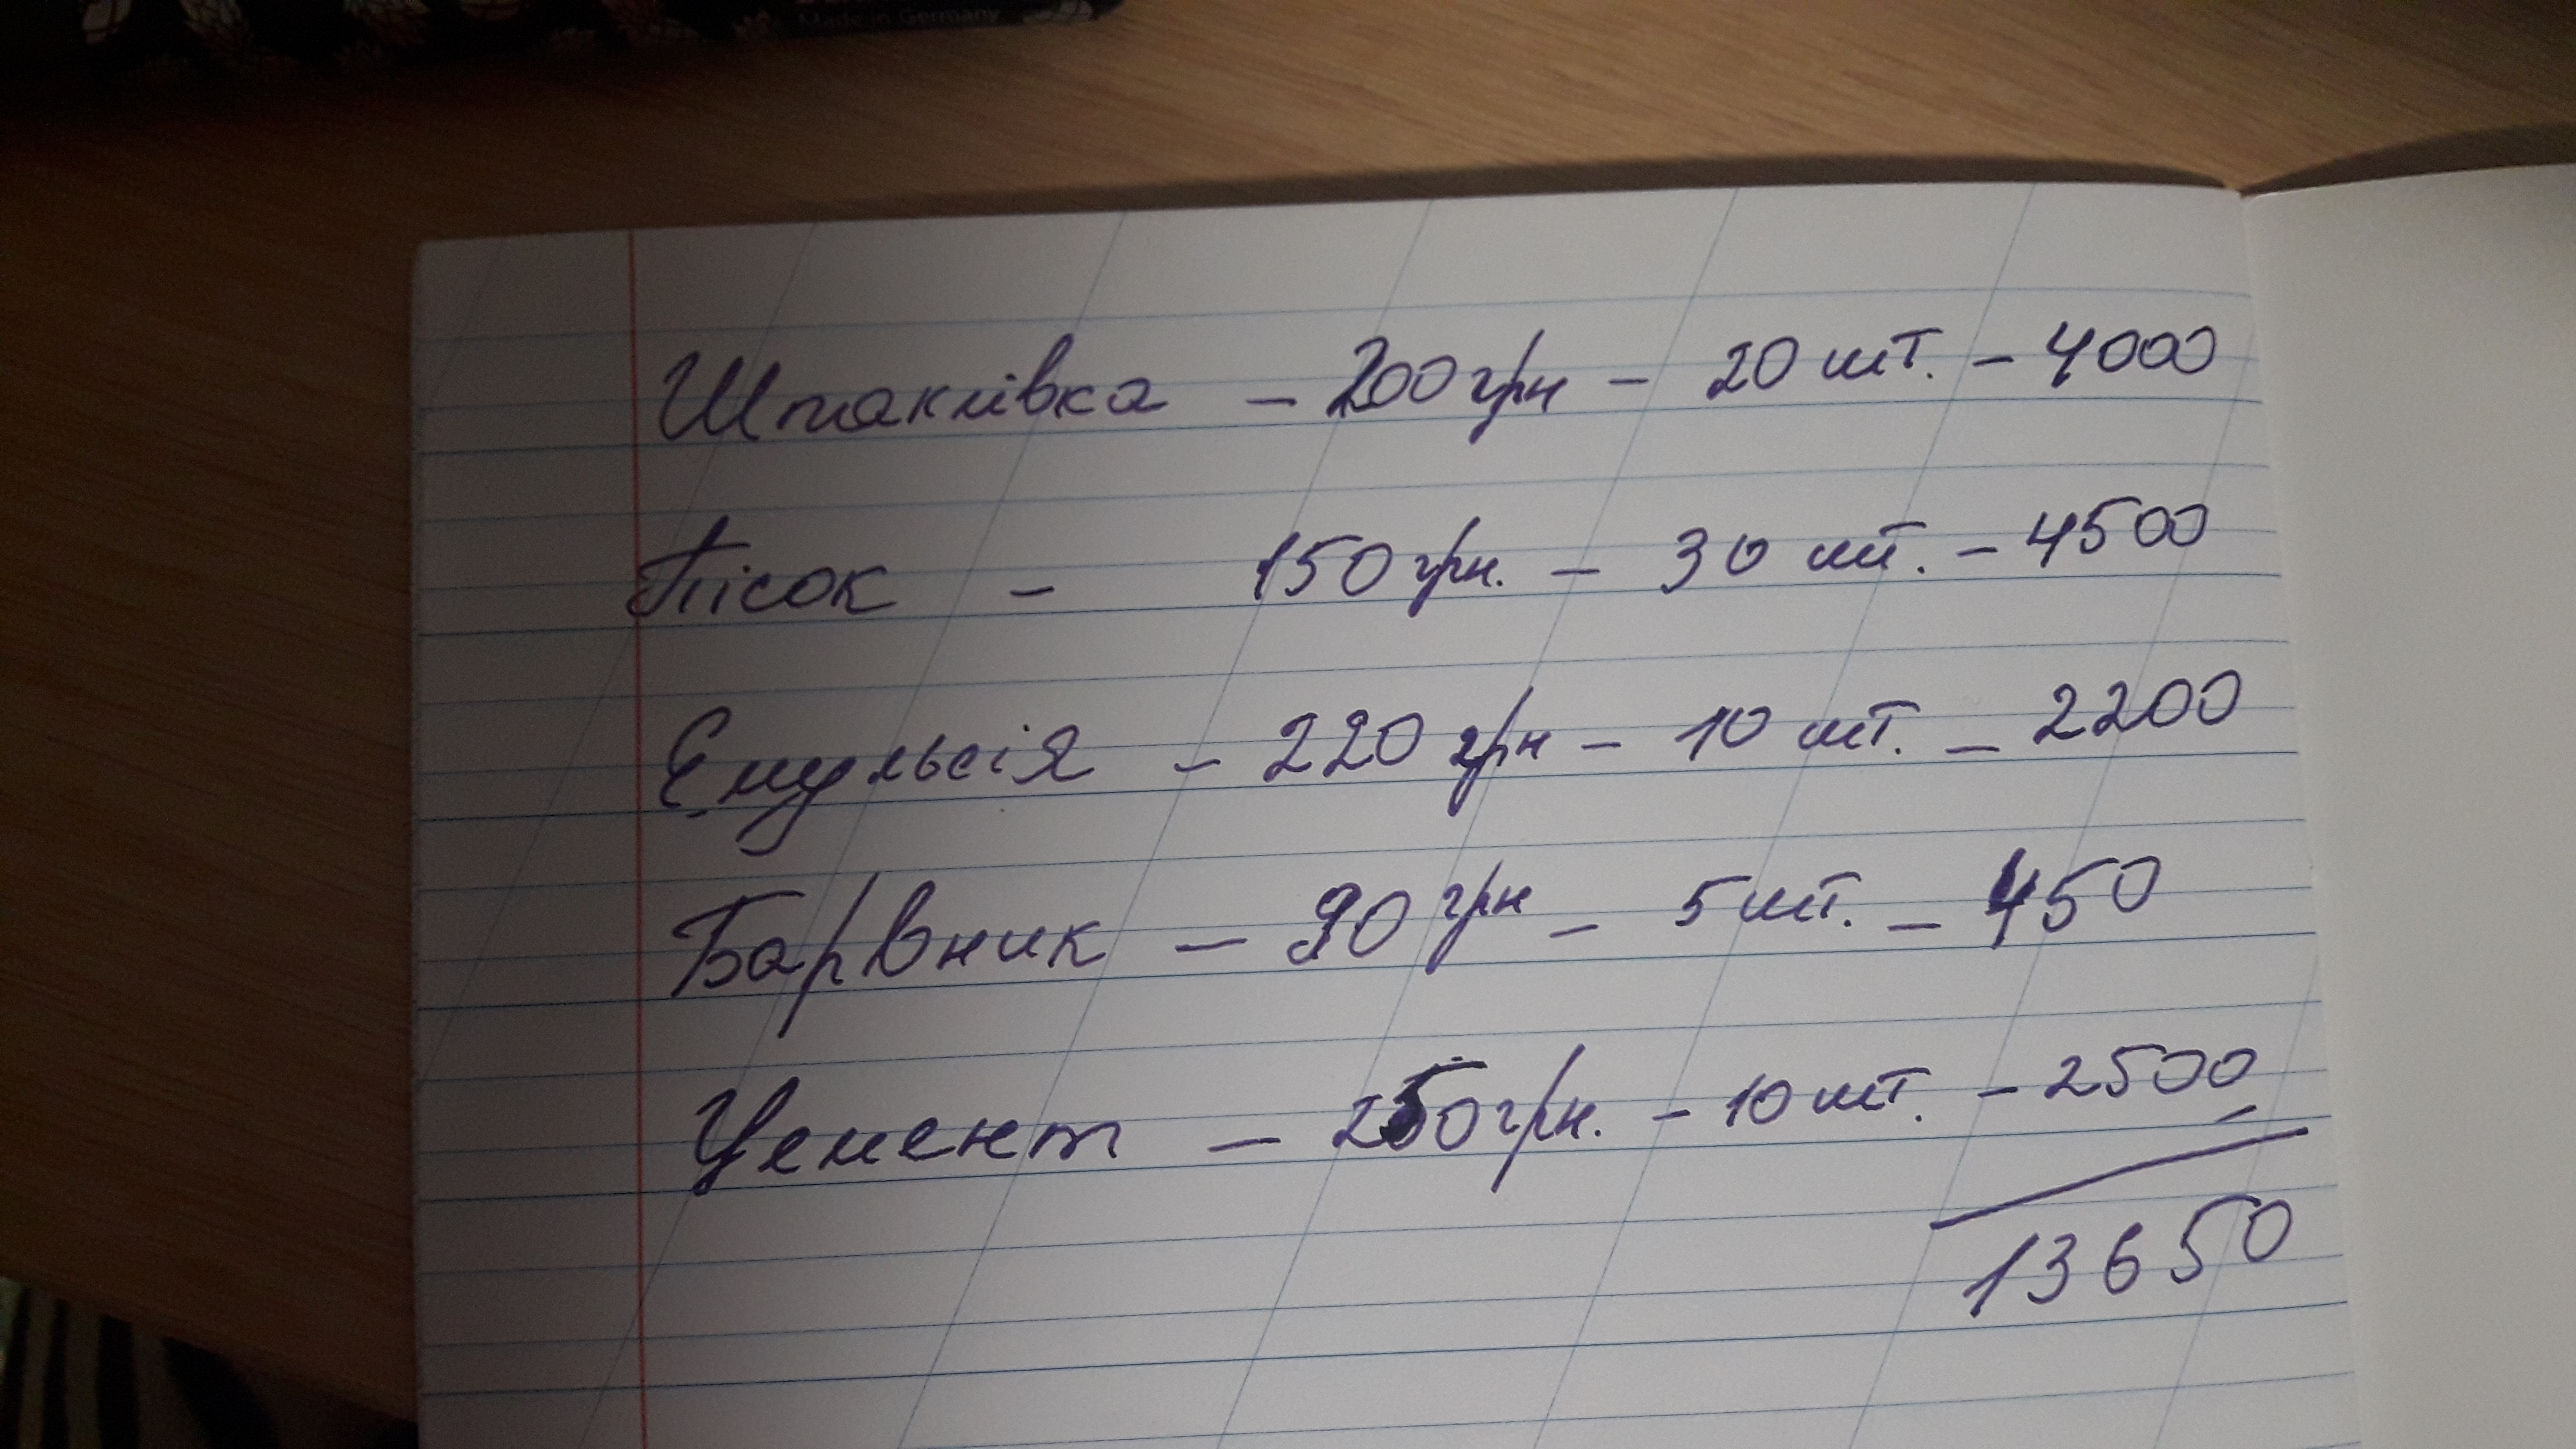 Made in Germany
Шпаклівка - 200 грн - 20 шт. - 4000
Пісок - 150 грн. - 30 шт. - 4500
Емульсія - 220 грн - 10 шт. - 2200
Барвник - 90 грн - 5 шт. - 450
Цемент - 250 грн. - 10 шт. - 2500
13650